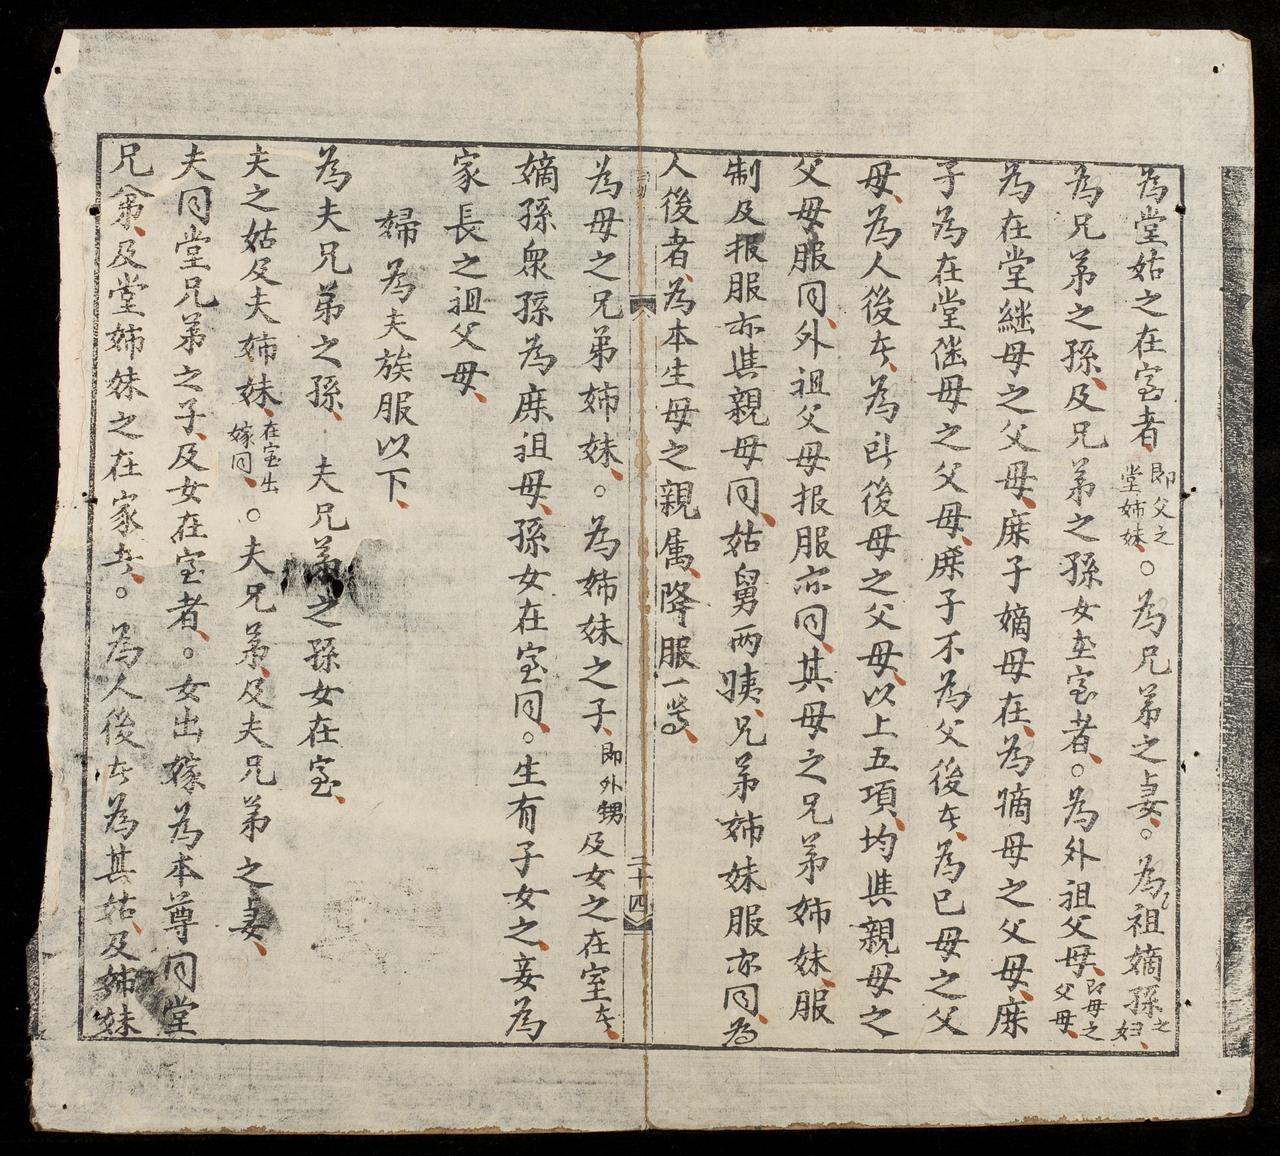 為堂姑之在室者即父之堂姉妹○為兄弟之妻○為祖嫡孫之妇
為兄弟之孫及兄弟之孫女在室者○為外祖父母即母之父母
為在堂継母之父母庶子嫡母在為嫡母之父母庶
子為在堂継母之父母庶子不為父後者為已母之父
母為人後者為所後母之父母以上五項均與親母之
父母服同外祖父母报服亦同其母之兄弟姉妹服
制及报服亦與親母同姑舅两姨兄弟姉妹服亦同為
人後者為本生母之親属降服一等
二十四
為母之兄弟姉妹○為姉妹之子即外甥及女之在室者
嫡孫衆孫為庶祖母孫女在室同○生有子女之妾為
家長之祖父母
婦為夫族服以下
為夫兄弟之孫 夫兄弟之孫女在室
夫之姑及夫姉妹在室出嫁同○夫兄弟及夫兄弟之妻
夫同堂兄弟之子及女在室者○女出嫁為本尊同堂
兄弟及堂姉妹之在家者○為人後者為其姑及姉妹